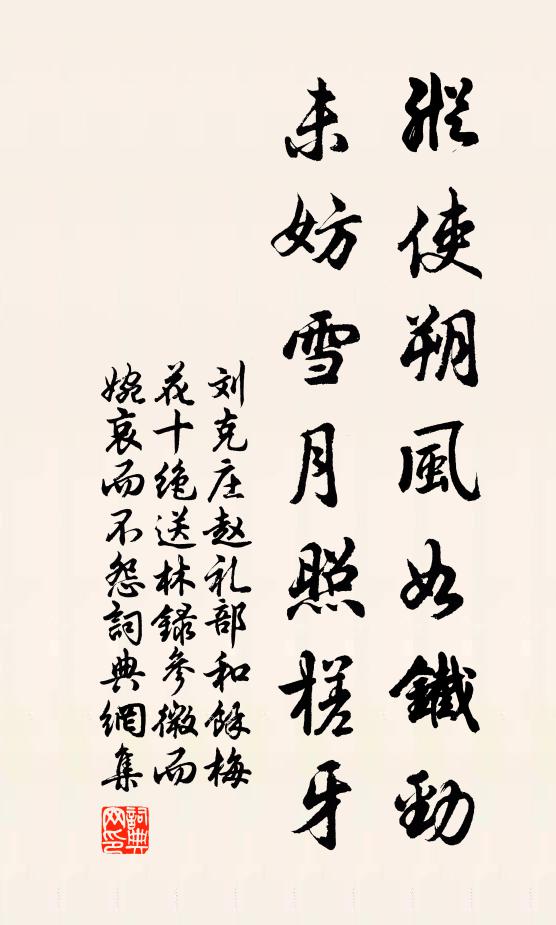 縱使朔風如鐵勁
未妨雪月照槎牙
刘克庄赵礼部和馀梅
花十绝送林録參微而
婉哀而不怨詞典網集
詞典网印